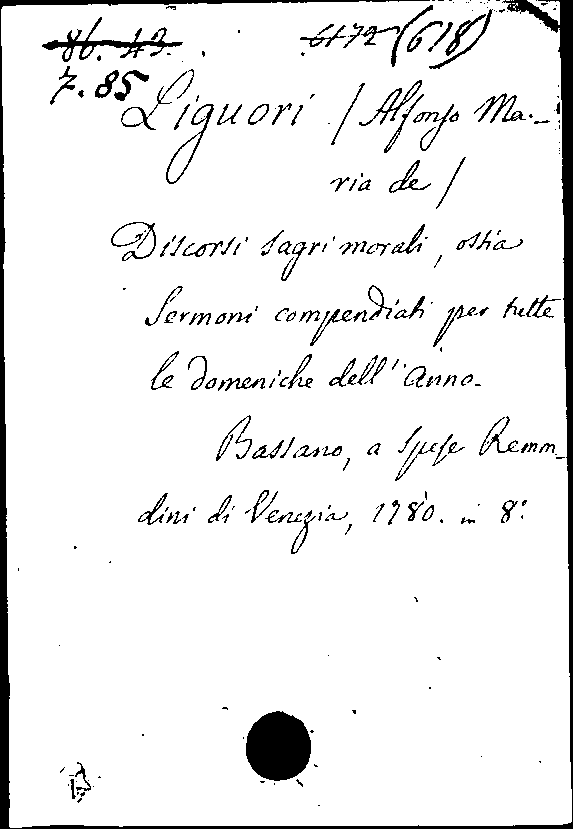 86. 43. 6172 (618)
7.85
Liguori / Alfonso Ma-
ria de /
Discorsi sagri morali, ossia
Sermoni compendiati per tutte
le domeniche dell' Anno.
Bassano, a spese Remon-
dini di Venezia, 1780. in 8°.